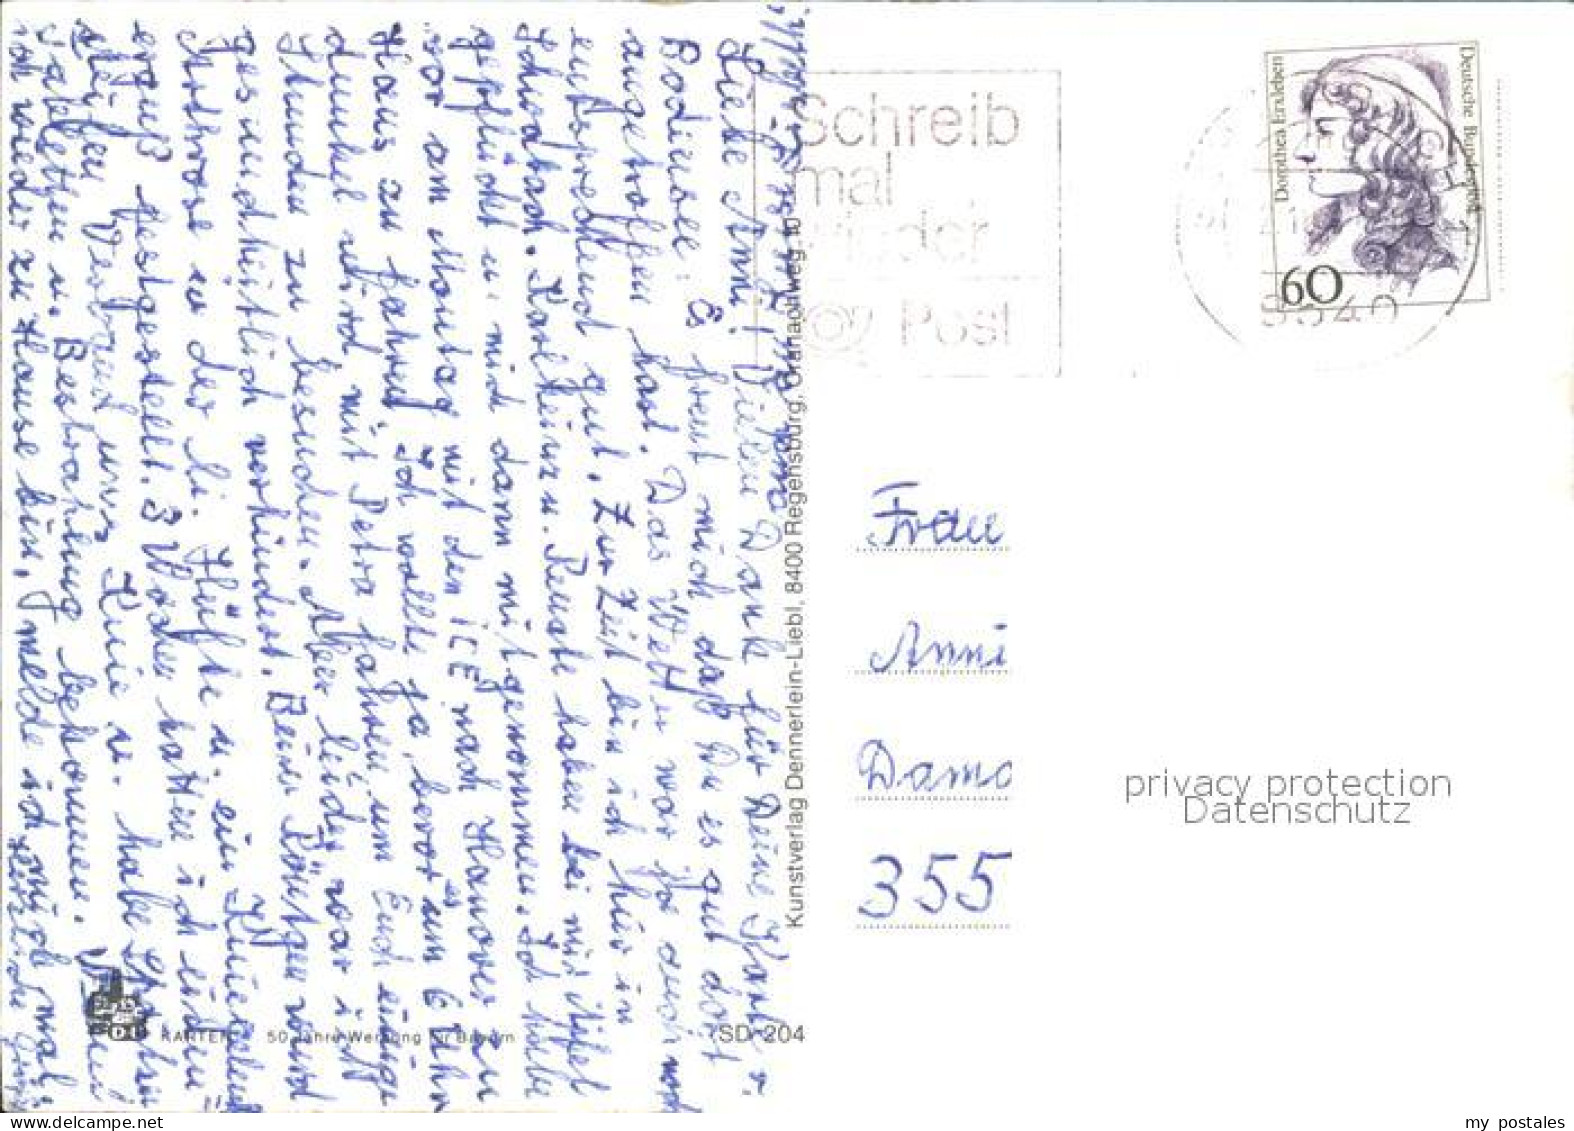 Liebe Anni! Vielen Dank für Deine Karte v.
Bodensee. Es freut mich daß Du es gut dort
angetroffen hast. Das Wetter war ja auch noch
entsprechend gut. Zur Zeit bin ich hier in
Karlheinz u. Renate haben bei mir Äpfel
gepflückt u. mich dann mitgenommen. Ich habe
vor am Montag mit dem ICE nach Hanover zu
Haus zu fahren. Ich wollte ja, bevor es um 6 Uhr
dunkel wird, mit Petra fahren, um Euch einige
Stunden zu besuchen. Aber leider war ich
gesundheitlich verhindert. Beim Röntgen wurd
Arthrose in der li. Hüfte u. ein Kniegelenk
erguß festgestellt. 3 Wochen hatte ich einen
steifen Verband ums Knie u. habe Spritzen
Tabletten u. Bestrahlung bekommen. Wenn
ich wieder zu Hause bin, melde ich mich mal.
Schreib
mal
wieder
Post
Deutsche Bundespost
Dorothea Erxleben
60
Frau
Anni
Damo
355
Kunstverlag Dennerlein-Liebl, 8400 Regensburg, Cranachweg 10
KARTEN 50 Jahre Werbung für Bayern
SD 204
privacy protection
Datenschutz
www.delcampe.net
my postales